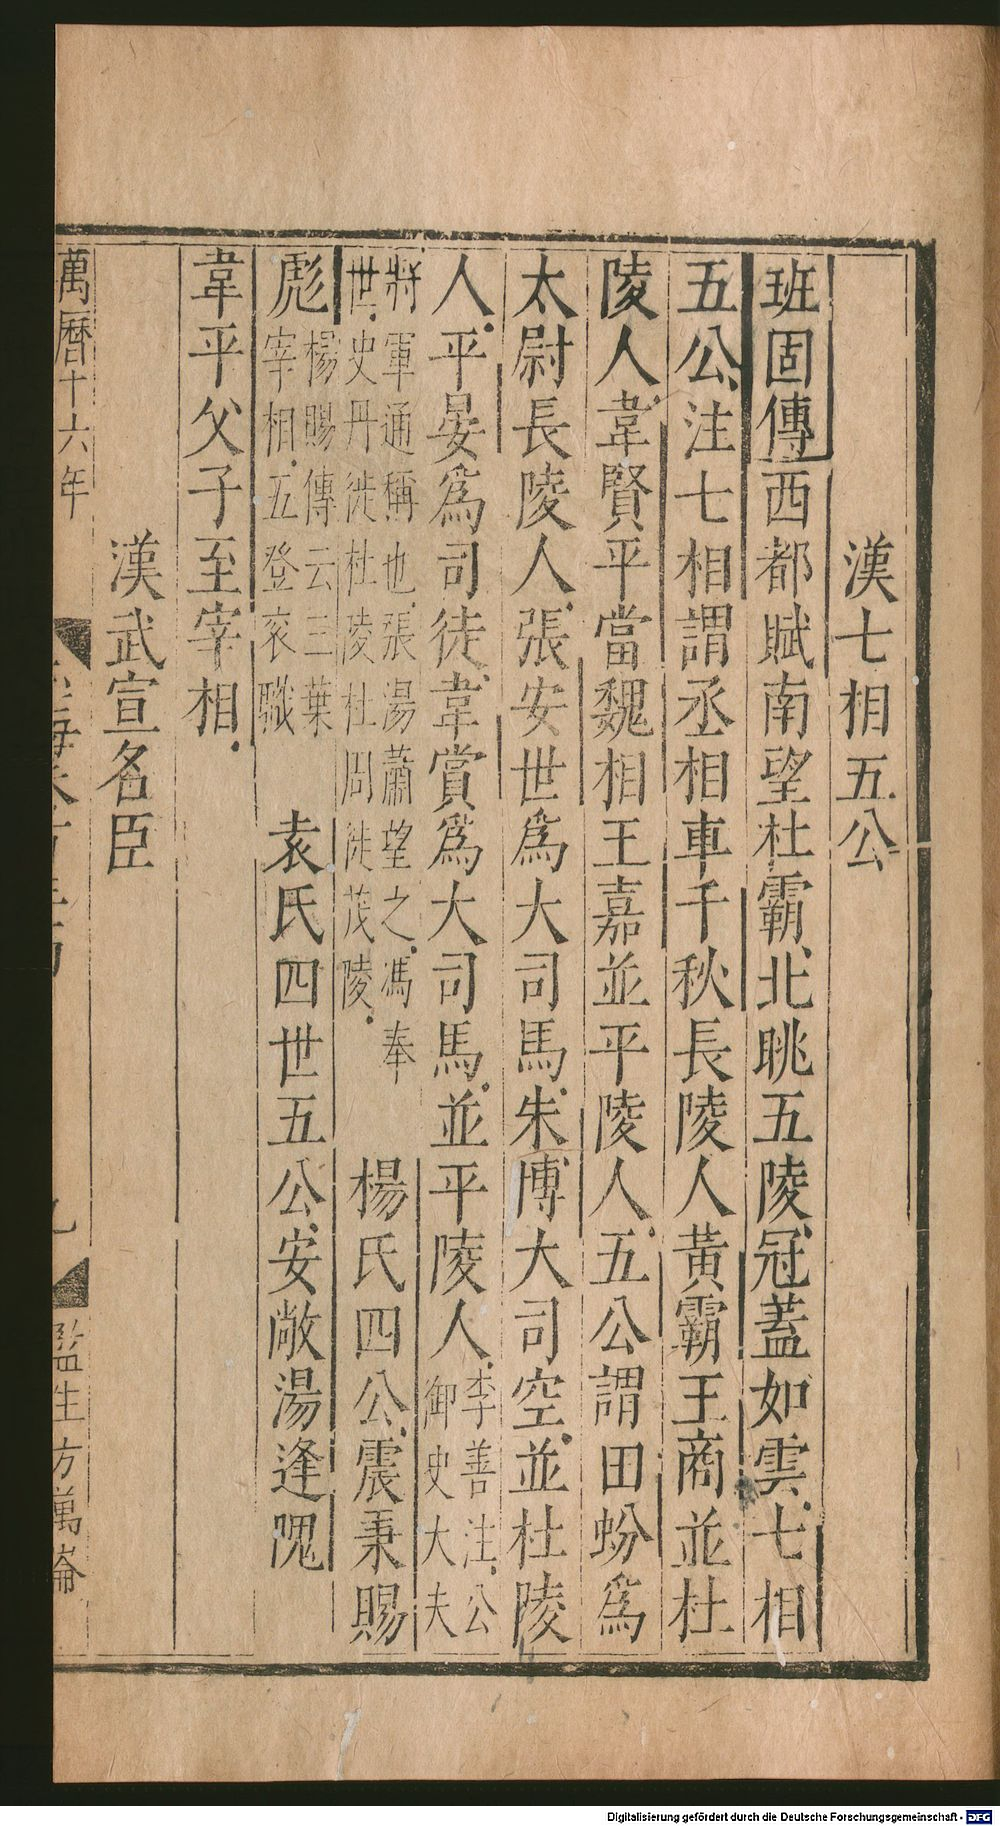 漢七相五公
班固傳西都賦南望杜霸北眺五陵冠蓋如雲七相
五公注七相謂丞相車千秋長陵人黃霸王商並杜
陵人韋賢平當魏相王嘉並平陵人五公謂田蚡為
太尉長陵人張安世為大司馬朱博大司空並杜陵
人平晏為司徒韋賞為大司馬並平陵人李善注公御史大夫
將軍通稱也張湯蕭望之馮奉世史丹徙杜陵杜周徙茂陵 楊氏四公震秉賜
彪楊賜傳云三葉宰相五登袞職 袁氏四世五公安敞湯逢隗
韋平父子至宰相
漢武宣名臣
萬曆十六年
九
監生方萬崙
Digitalisierung gefördert durch die Deutsche Forschungsgemeinschaft - DFG